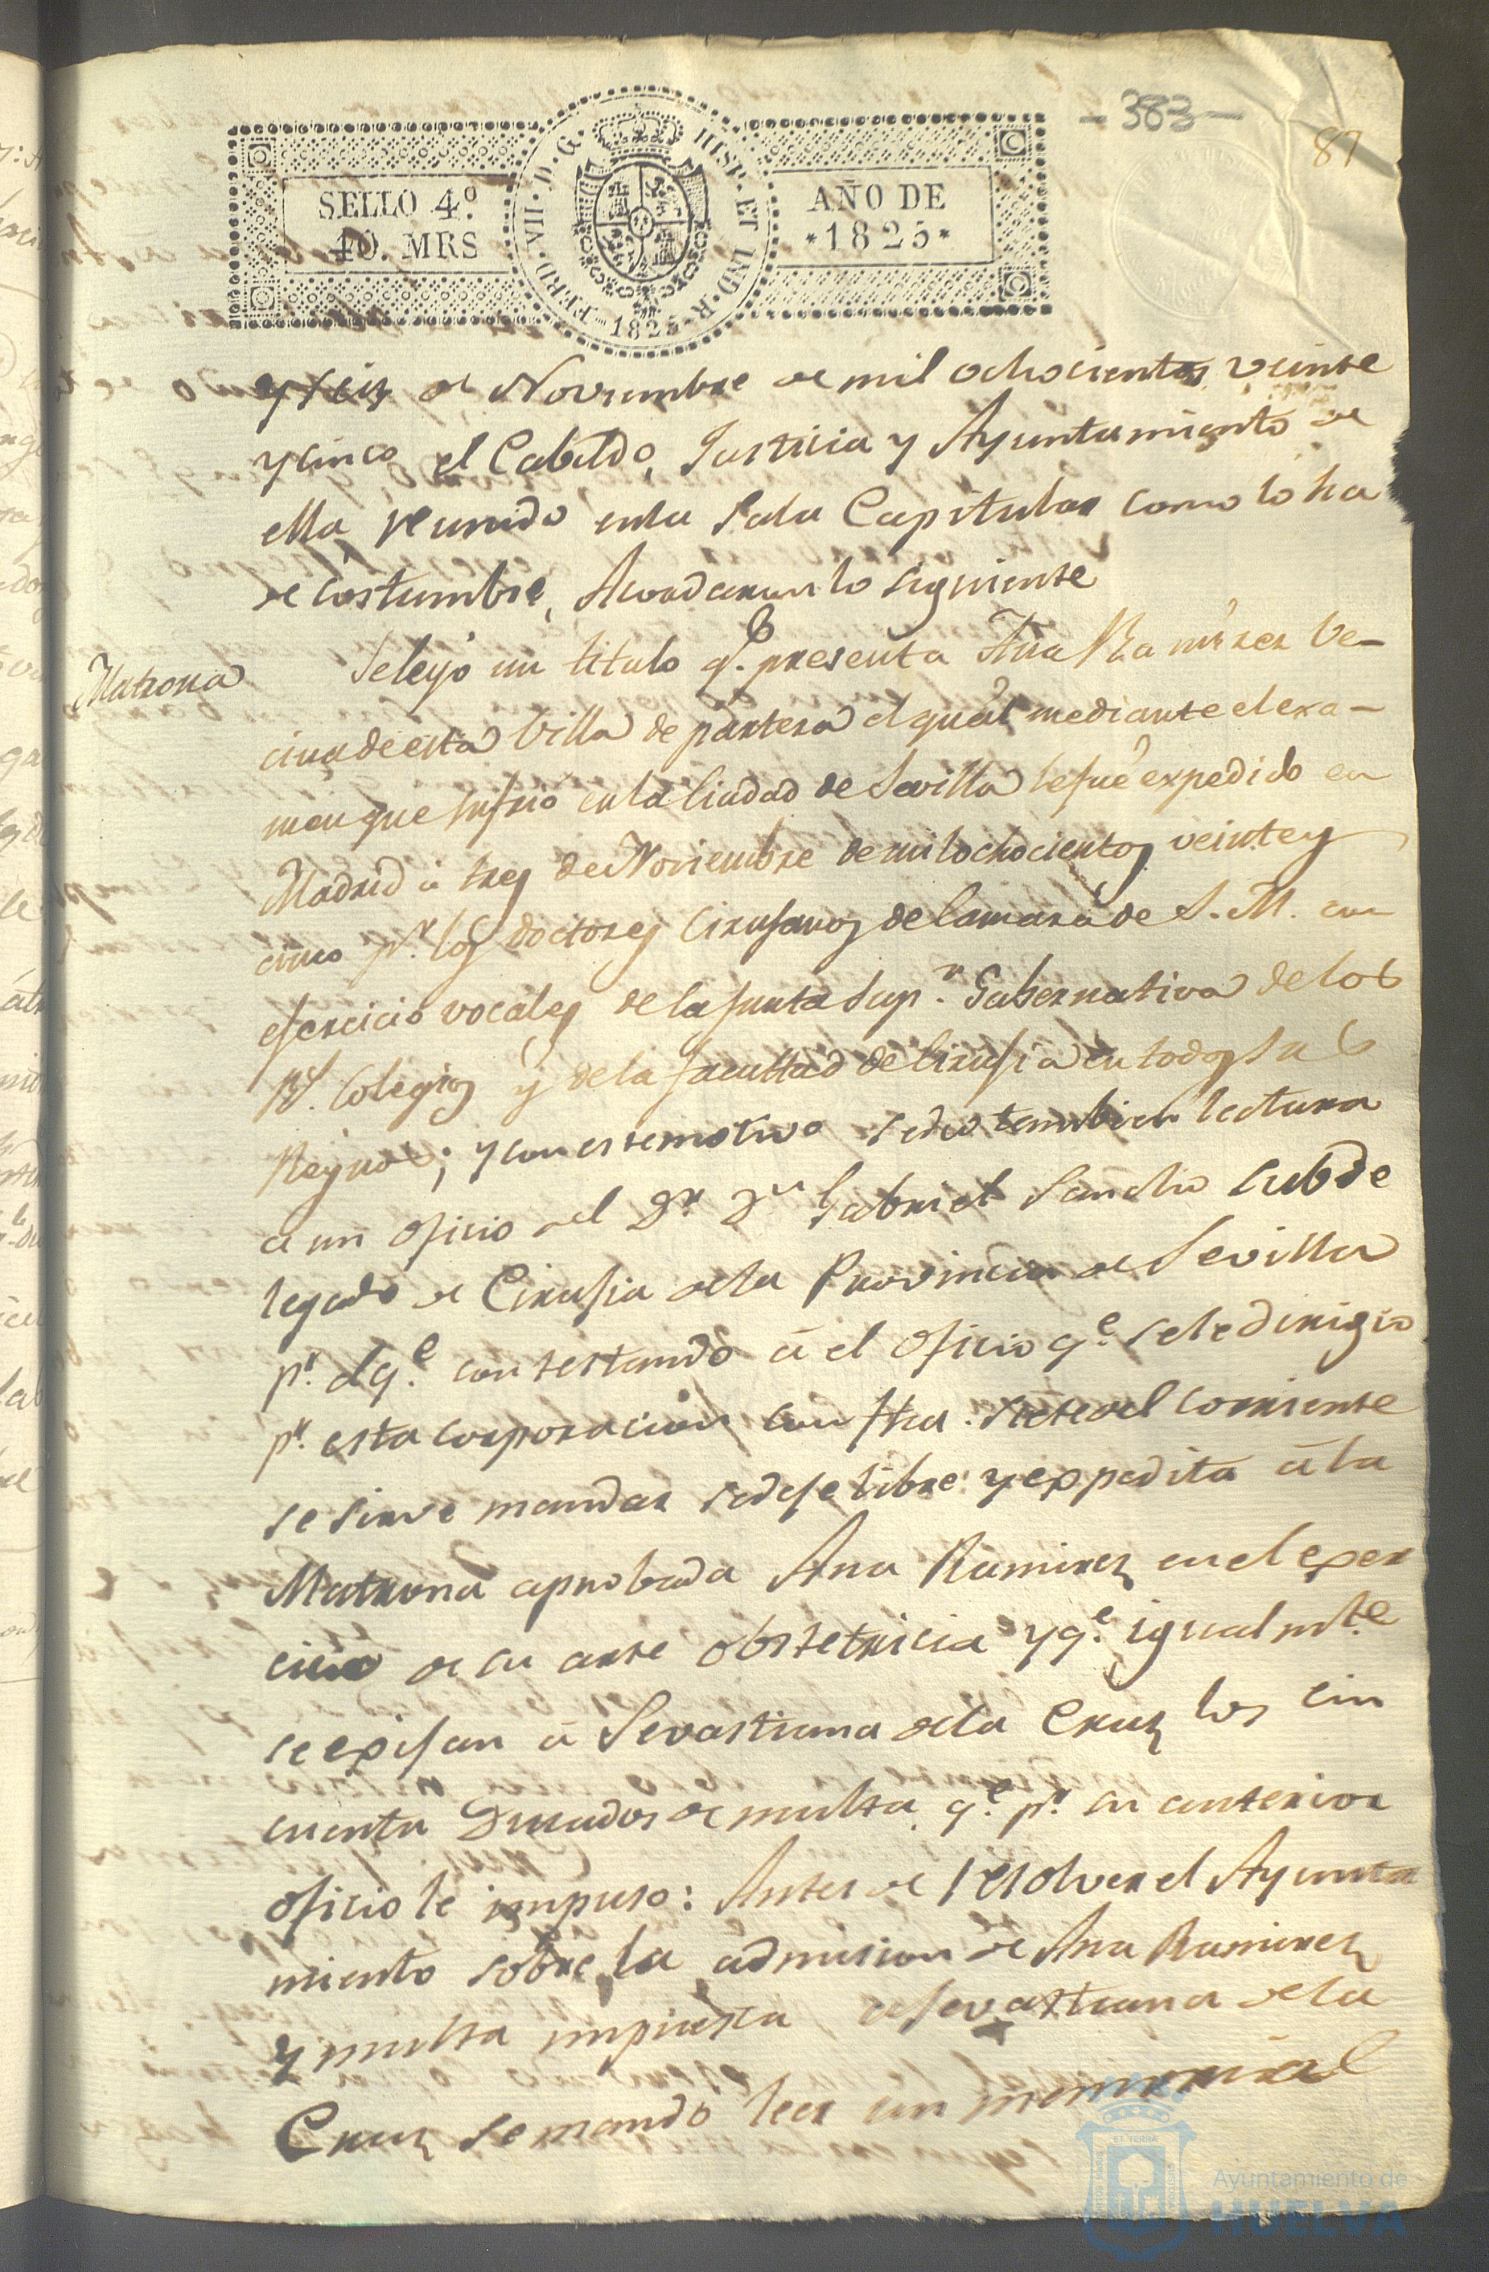 - 383 -
87
SELLO 4º.
40. MRS
FERD. VII. D. G. HISP. ET IND. R. 1825
AÑO DE
*1825*
y seis de Noviembre de mil ochocientos veinte
y cinco el Cabildo, Justicia y Ayuntamiento de
ella reunido enla Sala Capitular como lo ha
de costumbre, Acordaron lo siguiente
Matrona
Se leyó un titulo q.e presenta Ana Ramirez Ve-
cina de esta Villa de partera el qual mediante el exa-
men que sufrió en la Ciudad de Sevilla le fue expedido en
Madrid á tres de Noviembre de mil ochocientos veinte y
cinco p.r los doctores Cirujanos de Camara de S. M. con
ejercicio vocales de la Junta Sup.r Gubernativa de los
R.s Colegios y de la facultad de Cirujia en todos sus
Reynos; y con este motivo se dio tambien lectura
a un oficio del D.r D.n Gabriel Sancho Subde
legado de Cirujia dela Provincia de Sevilla
p.r el q.e contestando á el oficio q.e sele dirigio
p.r esta corporacion con fha. siete del corriente
se sirve mandar se deje libre y expedita á la
Matrona aprobada Ana Ramirez en el exer
cicio de su arte obstetricia y q.e igualm.te
se exijan á Sevastiana dela Cruz los cin
cuenta Ducados de multa q.e p.r su anterior
oficio le impuso: Antes de resolver el Ayunta
miento sobre la admision de Ana Ramirez
y multa impuesta a Sevastiana dela
Cruz se mandó leer un memorial
Ayuntamiento de
HUELVA